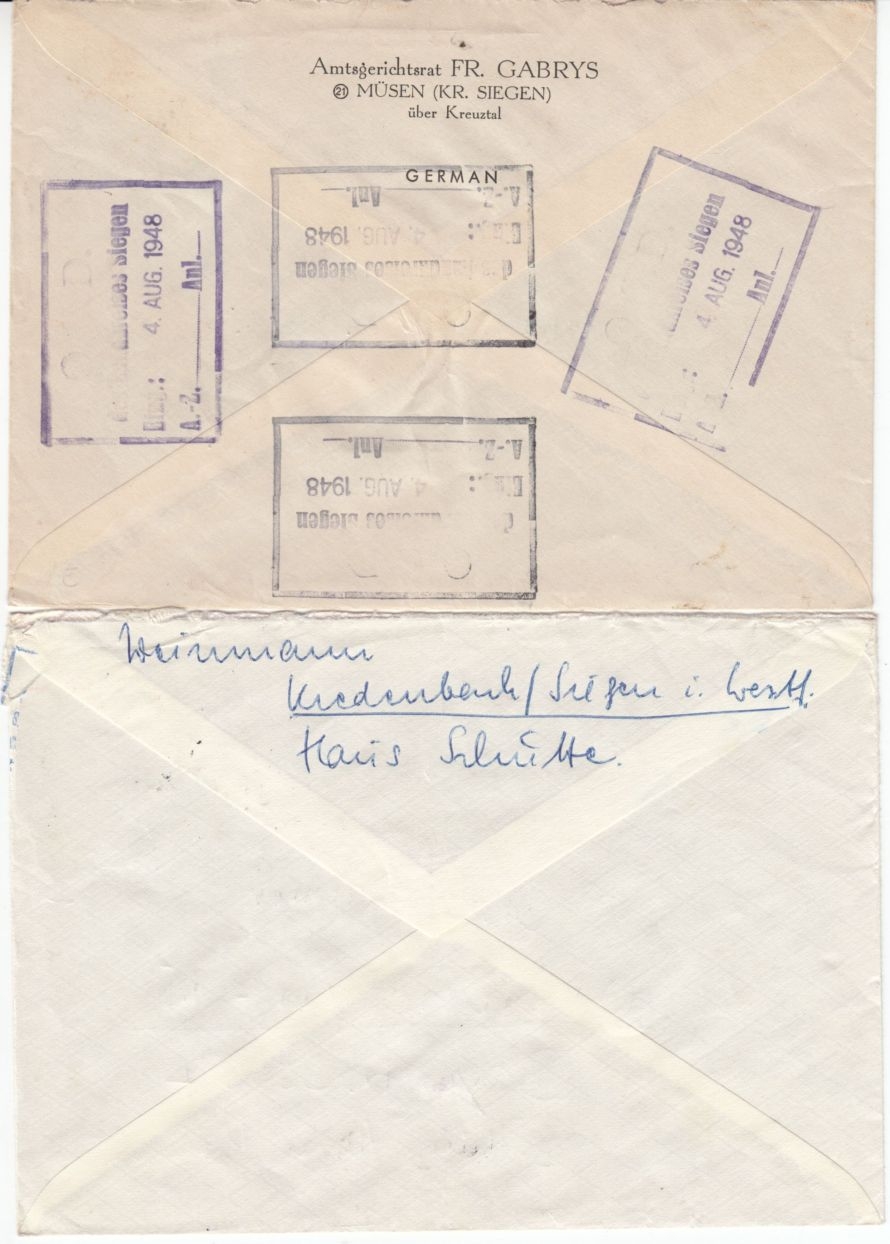 Amtsgerichtsrat FR. GABRYS
㉑ MÜSEN (KR. SIEGEN)
über Kreuztal
GERMAN
Siegen
4. AUG. 1948
A.-Z. Anl.
A.-Z. Anl.
Eing.: 4. AUG. 1948
Siegen
Siegen
4. AUG. 1948
Anl.
A.-Z. Anl.
4. AUG. 1948
Siegen
Weinmann
Kredenbach/Siegen i. Westf.
Haus Schütte.